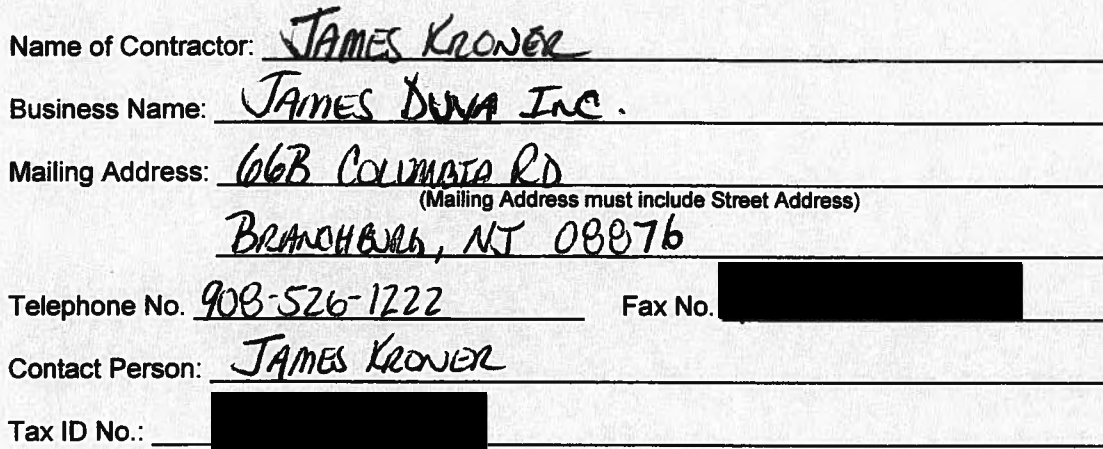 Name of Contractor: JAMES KRONER
Business Name: JAMES DUVA INC.
Mailing Address: 66B COLUMBIA RD
(Mailing Address must include Street Address)
BRANCHBURG, NJ 08876
Telephone No. 908-526-1222 Fax No.
Contact Person: JAMES KRONER
Tax ID No.: